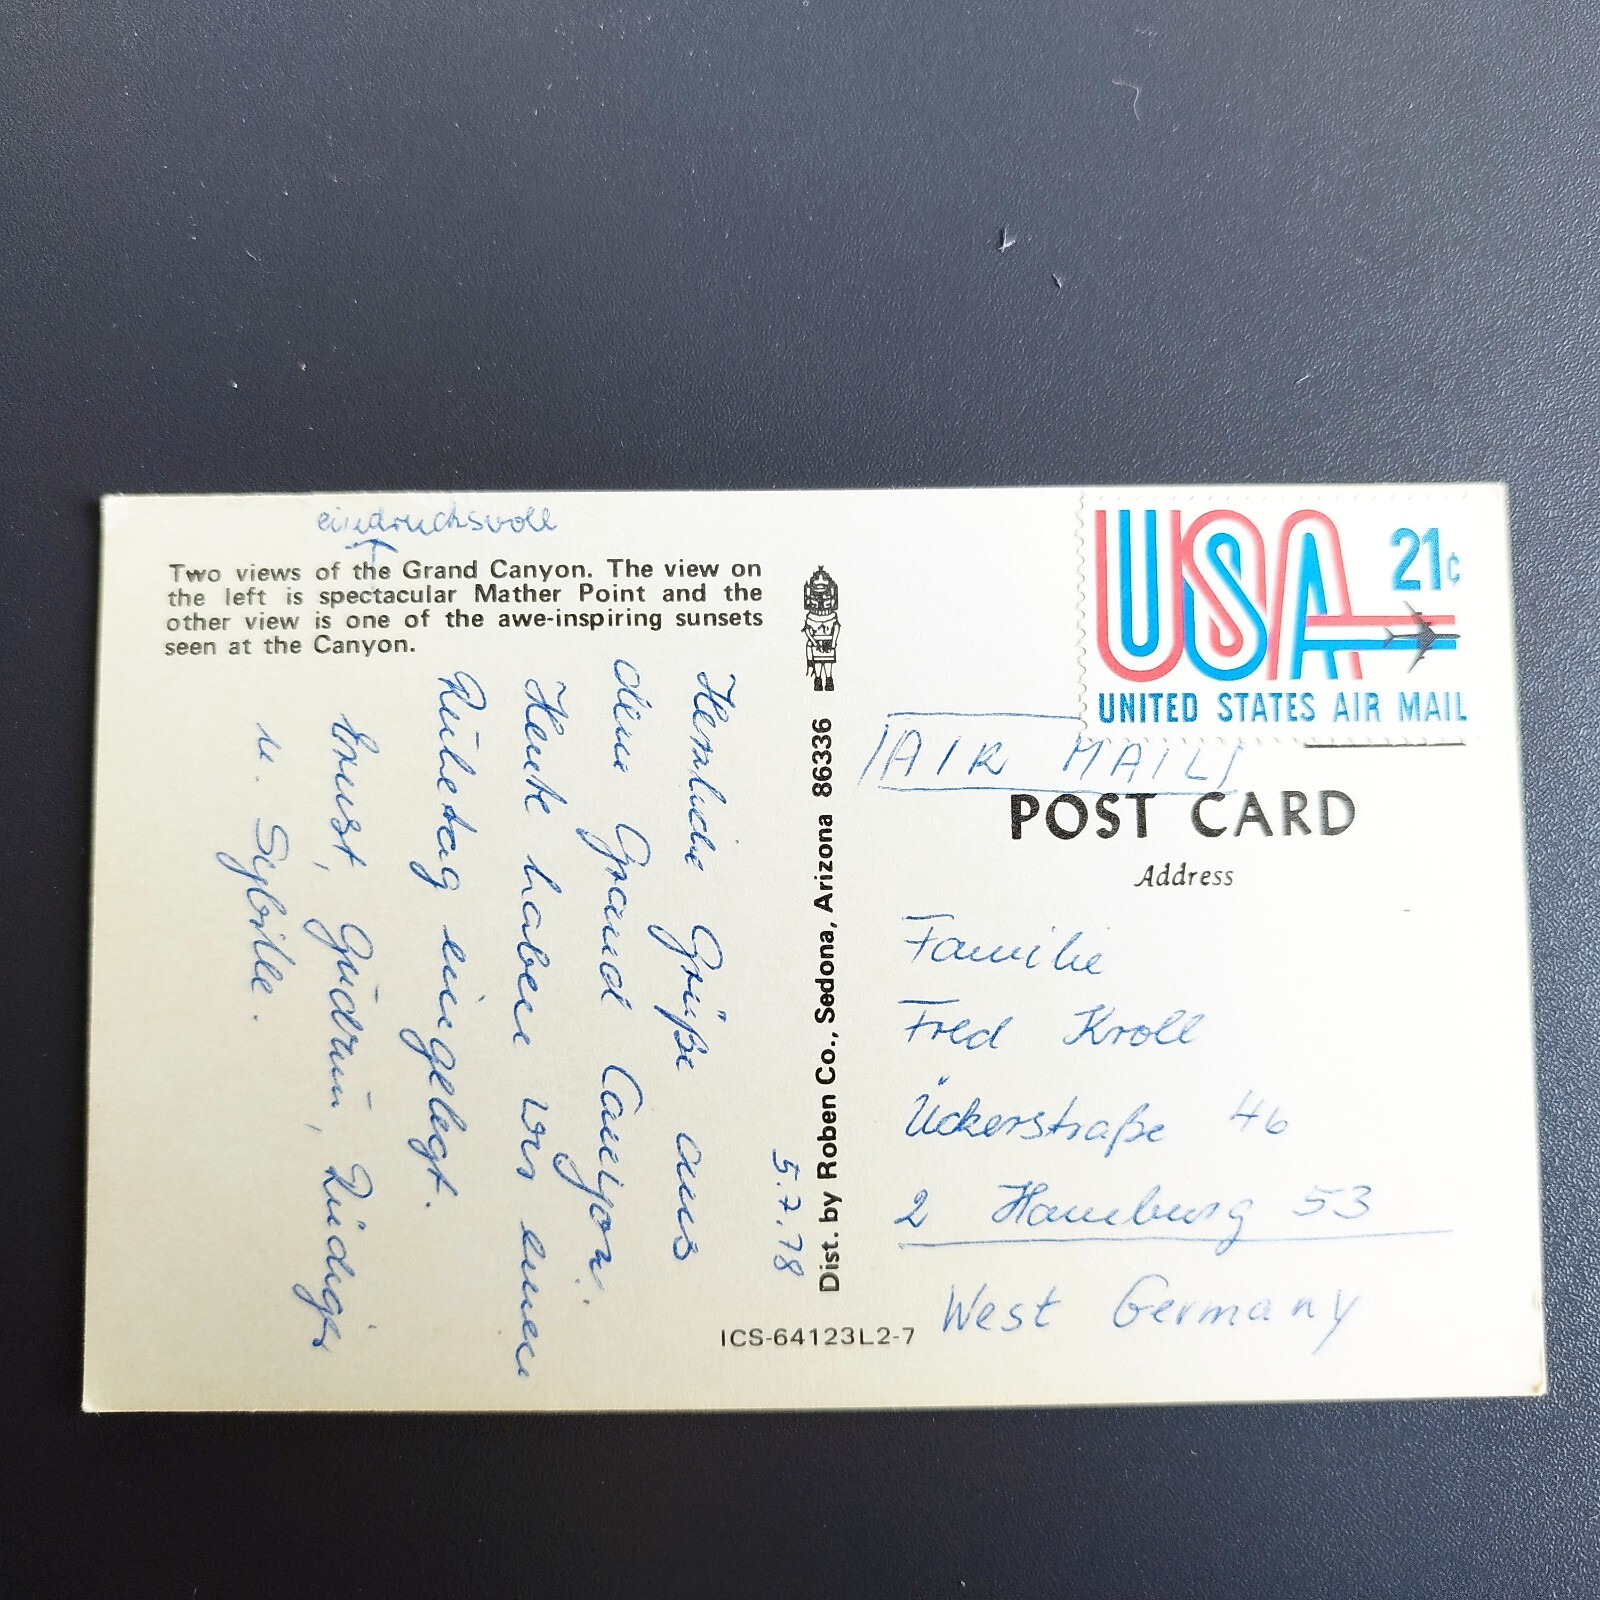 eindrucksvoll
Two views of the Grand Canyon. The view on
the left is spectacular Mather Point and the
other view is one of the awe-inspiring sunsets
seen at the Canyon.
5.7.78
Herzliche Grüße aus
dem Grand Canyon.
Heute haben wir einen
Ruhetag eingelegt.
Ernst, Gudrun, Rüdiger
u. Sybille.
Dist. by Roben Co., Sedona, Arizona 86336
ICS-64123L2-7
USA 21¢
UNITED STATES AIR MAIL
AIR MAIL
POST CARD
Address
Familie
Fred Kroll
Ückerstraße 46
2 Hamburg 53
West Germany